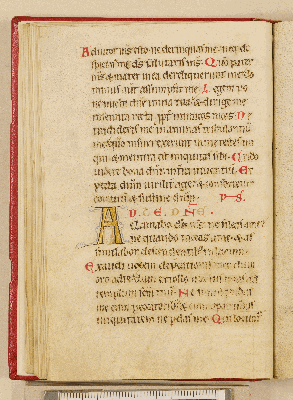 Adiutor m̄s esto ne derinquas me neq; de
spicias me d̄s salutaris m̄s. Qm̄ pater
m̄s & mater mea dereliquerunt me do
minus aut̄ assumpsit me. Legem
in uia tua & dirige me
in semita recta ppt inimicos meos. Ne
me in animas tribulantiu
me qm̄ insurrexerunt in me testes ini
qui & mentita est iniquitas sibi. Credo
uidere bona dn̄i in terra uiuentiu. Ex
pecta dn̄m uiriliter age & confortetur
cor tuū & sustine dn̄m. PS.
AD TE DNE
clamabo d̄s m̄s ne sileas a me
ne quando taceas a me & as
similabor descendentib; in lacum.
Exaudi uocem deprecationis mee dum
oro ad te dum extollo manus meas ad
templum scm̄ tuū. Ne simul tradas
me cum peccatorib; & cum operantib;
iniquitatem ne pdas me. Qui locunt̄